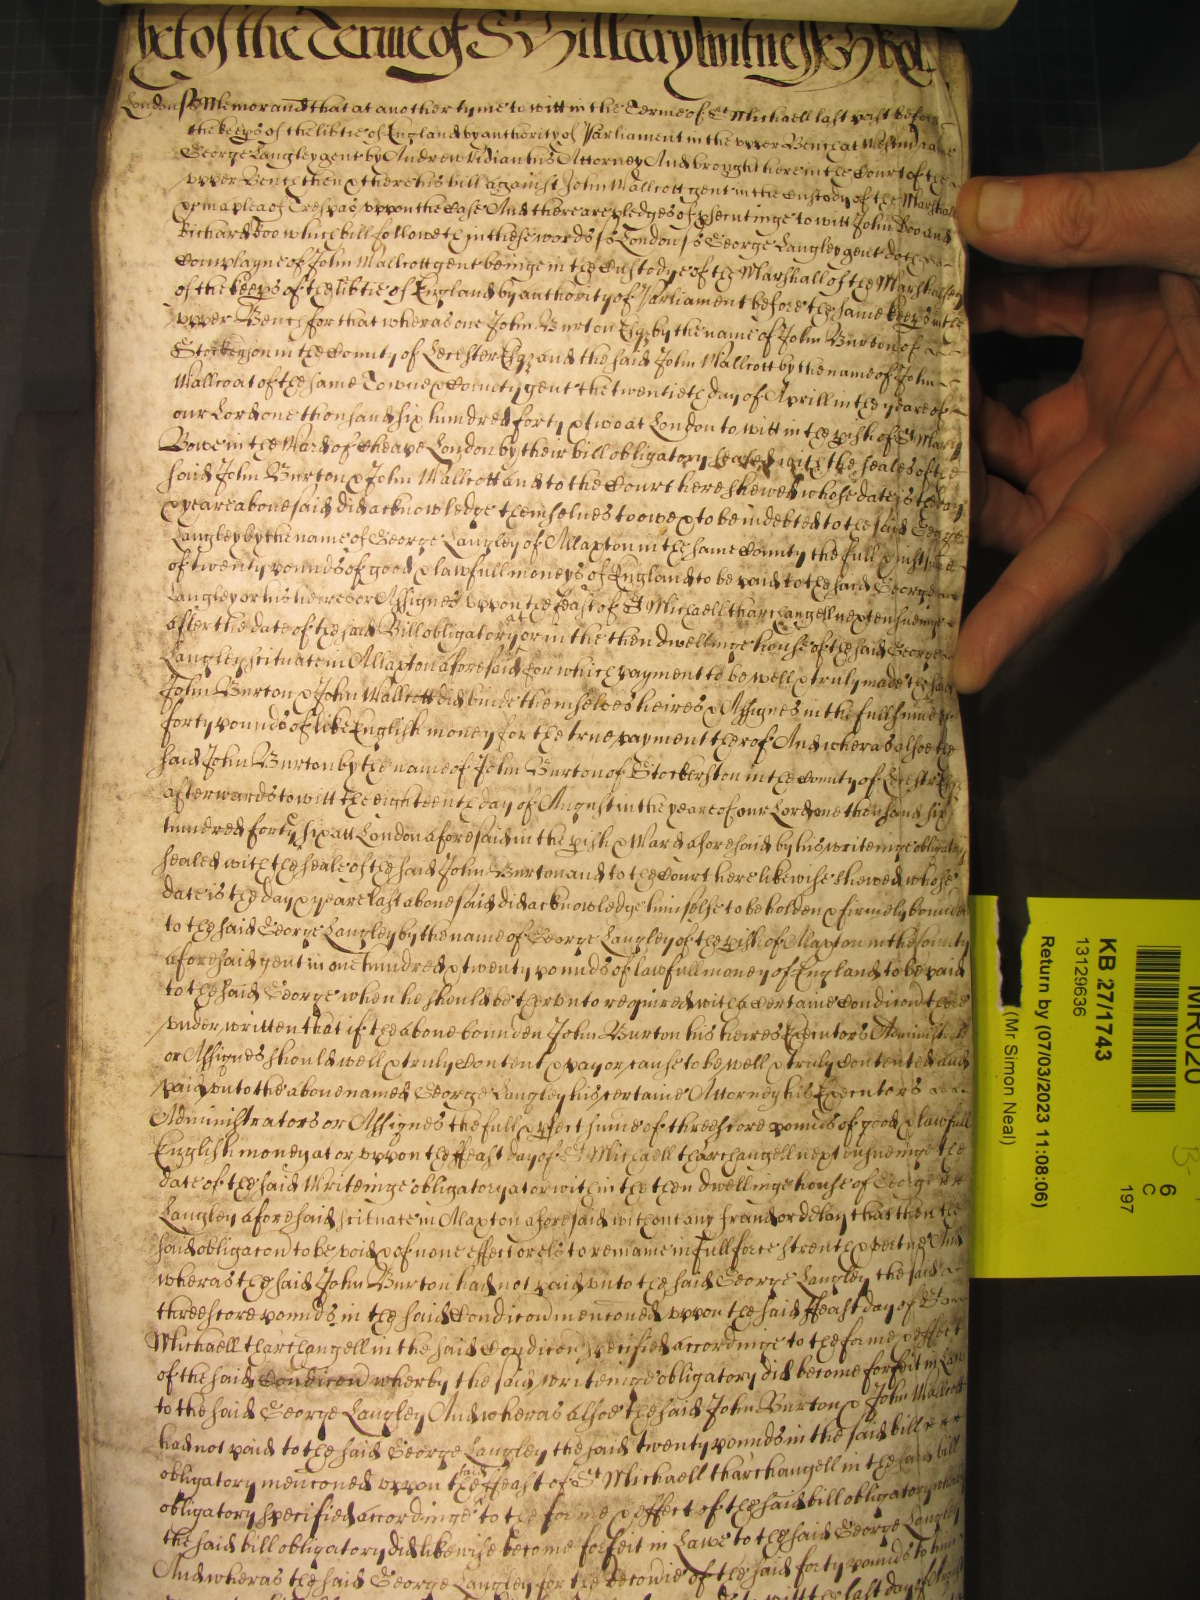 yet of the Terme of St Hillary witnes H Rol
London ss Memorand that at another tyme to witt in the Terme of St Michaell last past before
the keeps of the libtie of England by authority of Parliament in the upper Bench at Westm came
George Langley gent by Andrew Vidian his Attorney And brought here in the Court of the
upper Bench then & there his bill against John Mallcott gent in the Custody of the Marshall
of a plea of Trespas uppon the Case And there are pledges of psecutinge to witt John Doo and
Richard Roo which bill followeth in these words ss London ss George Langley gent doth
Complayne of John Mallcott gent beinge in the Custodye of the Marshall of the Marshalsey
of the keeps of the libtie of England by authority of Parliament before the same keeps in the
upper Bench for that wheras one John Burton Esqr by the name of John Burton of
Stockerson in the County of Leicester Esqr and the said John Mallcott by the name of John
Mallcoat of the same Towne & County gent the twentieth day of Aprill in the yeare of
our Lord one thousand six hundred forty & two at London to witt in the pish of St Mary
Bowe in the Ward of Cheape London by their bill obligatory sealed with the seales of the
said John Burton & John Mallcott and to the Court here shewed whose date is the day
& yeare above said did acknowledge themselves to owe & to be indebted to the said George
Langley by the name of George Langley of Allaxton in the same County the full & just sume
of twenty pounds of good & lawfull moneys of England to be paid to the said George
Langley or his heires or Assignes uppon the feast of St Michaell tharchangell next ensueinge
after the date of the said Bill obligatory at or in the then dwellinge house of the said George
Langley scituate in Allaxton aforesaid for which payment to be well & truly made the said
John Burton & John Mallcott did binde themselves heires & Assignes in the full sume of
forty pounds of like English money for the true payment therof And wheras alsoe the
said John Burton by the name of John Burton of Stockerston in the County of Leicstr Esqr
afterwards to witt the eighteenth day of August in the yeare of our Lord one thousand six
hundred forty six att London aforesaid in the pish & Ward aforesaid by his writeinge obligatory
sealed with the seale of the said John Burton and to the Court here likewise shewed whose
date is the day & yeare last above said did acknowledge himselfe to be holden & firmely bound
to the said George Langley by the name of George Langley of the pish of Alaxton in the County
aforesaid gent in one hundred & twenty pounds of lawfull money of England to be paid
to the said George when he should be therunto required with a certaine Condicon there
under written that if the above bounden John Burton his heires Executors Administrators
or Assignes should well & truly Content & pay or cause to be well & truly Contented and
paid unto the above named George Langley his certaine Attorney his Executors
Administrators or Assignes the full & pfect sume of threescore pounds of good & lawfull
English money at or uppon the ffeast day of St Michaell tharchangell next ensueinge the
date of the said Writeinge obligatory at or within the then dwellinge house of George
Langley aforesaid scituate in Alaxton aforesaid without any fraud or delay that then the
said obligacon to be void & of none effect or els to remaine in full force strenth & vertue And
wheras the said John Burton had not paid unto the said George Langley the said
threescore pounds in the said Condicon menconed uppon the said ffeast day of St
Michaell tharchangell in the said Condicon specified accordinge to the forme & effect
of the said Condicon wherby the said writeinge obligatory did become forfeit in Law
to the said George Langley And wheras alsoe the said John Burton & John Mallcott
had not paid to the said George Langley the said twenty pounds in the said bill
obligatory menconed uppon the said ffeast of St Michaell tharchangell in the said bill
obligatory specified accordinge to the forme & effect of the said bill obligatory wherby
the said bill obligatory did likewise become forfeit in Lawe to the said George Langley
And wheras the said George Langley for the recovie of the said forty pounds to him
to witt the last day of
MR020
KB 27/1743
13129636
Return by (07/03/2023 11:08:06)
(Mr Simon Neal)
6
C
197